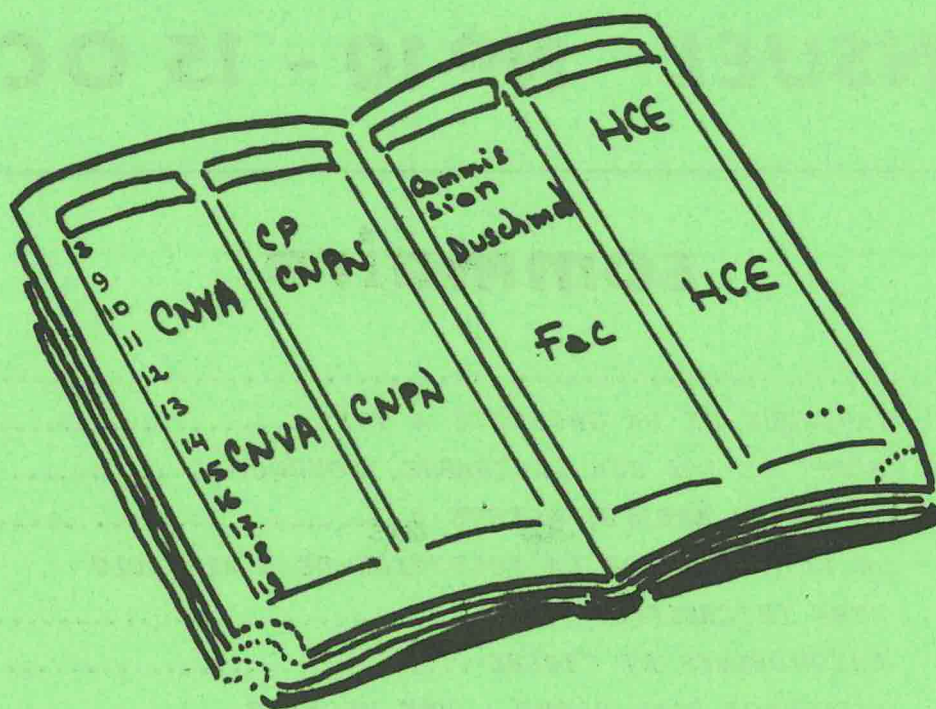 8
9
10
11
12
13
14
15
16
17
18
19
CNVA
CNVA
CP
CNPN
CNPN
Commis
sion
Duschmol
Fac
HCE
HCE
...